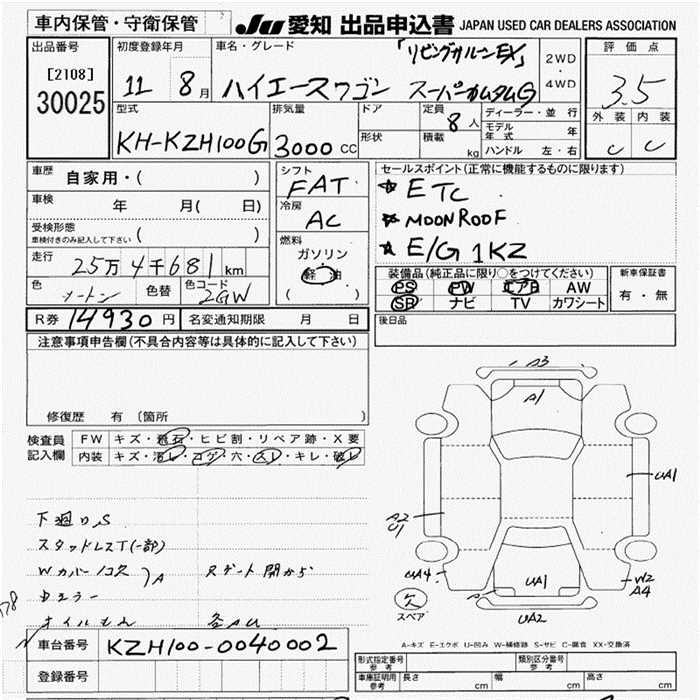 車内保管・守衛保管 JU 愛知 出品申込書 JAPAN USED CAR DEALERS ASSOCIATION
出品番号 初度登録年月 車名・グレード 「リビングサルーンEX」 2WD・4WD 評価点
[2108]
30025 11 8月 ハイエースワゴン スーパーカスタムG 3.5
型式 排気量 ドア 定員 8人 ディーラー・並行 外装 内装
KH-KZH100G 3000cc 形状 積載 kg モデル年式 年 C C
ハンドル 左・右
車歴 自家用・( ) シフト FAT セールスポイント(正常に機能するものに限ります)
車検 年 月( 日) 冷房 AC ETC
受検形態 ( ) MOON ROOF
車検付きのみ記入して下さい 燃料 ガソリン E/G 1KZ
走行 25万4千681km 軽油 装備品(純正品に限り○をつけてください) 新車保証書
色 ツートン 色替 色コード 2GW ( ) PS PW エアB AW 有・無
SR ナビ TV カワシート
R券 14930円 名変通知期限 月 日 後日品
注意事項申告欄(不具合内容等は具体的に記入して下さい)
修復歴 有 〔箇所 〕
検査員 FW キズ・飛石・ヒビ割・リペア跡・X要
記入欄 内装 キズ・汚レ・コゲ・穴・スレ・キレ・破レ
A3
A1
UA1
A2
U1
下廻りS
スタッドレスT(一部)
Wカバー/コス A Rゲート開から
UA4 UA1 W2
A4
欠
スペア UA2
車台番号 KZH100-0040002
A-キズ E-エクボ U-凹み W-補修跡 S-サビ C-腐食 XX-交換済
登録番号 型式指定番号 参考 類別区分番号 参考
車庫証明用 参考 長さ cm 幅 cm 高さ cm